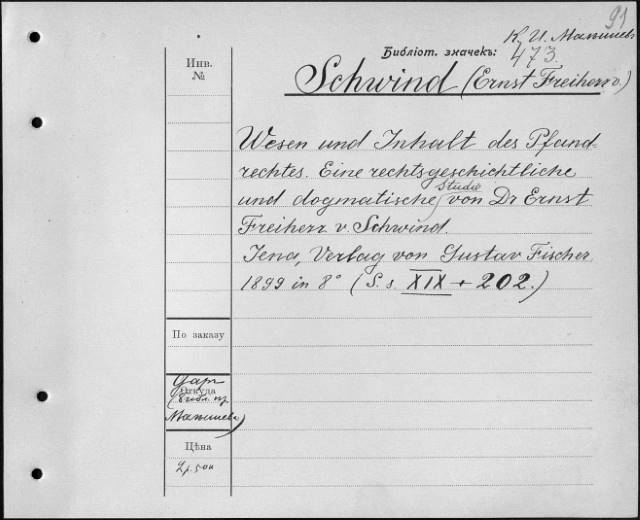 91
К. И. Малышев
Библіот. значекъ:
473.
Инв.
№
Schwind (Ernst Freiherr v.)
Wesen und Inhalt des Pfand-
rechtes. Eine rechtsgeschichtliche
und dogmatische Studie von Dr Ernst
Freiherr v. Schwind.
Jena, Verlag von Gustav Fischer
1899 in 8° (S. s. XIX + 202.)
По заказу
Даръ
Откуда
(библ. пр.
Малышева)
Цѣна
2 р. 50 к